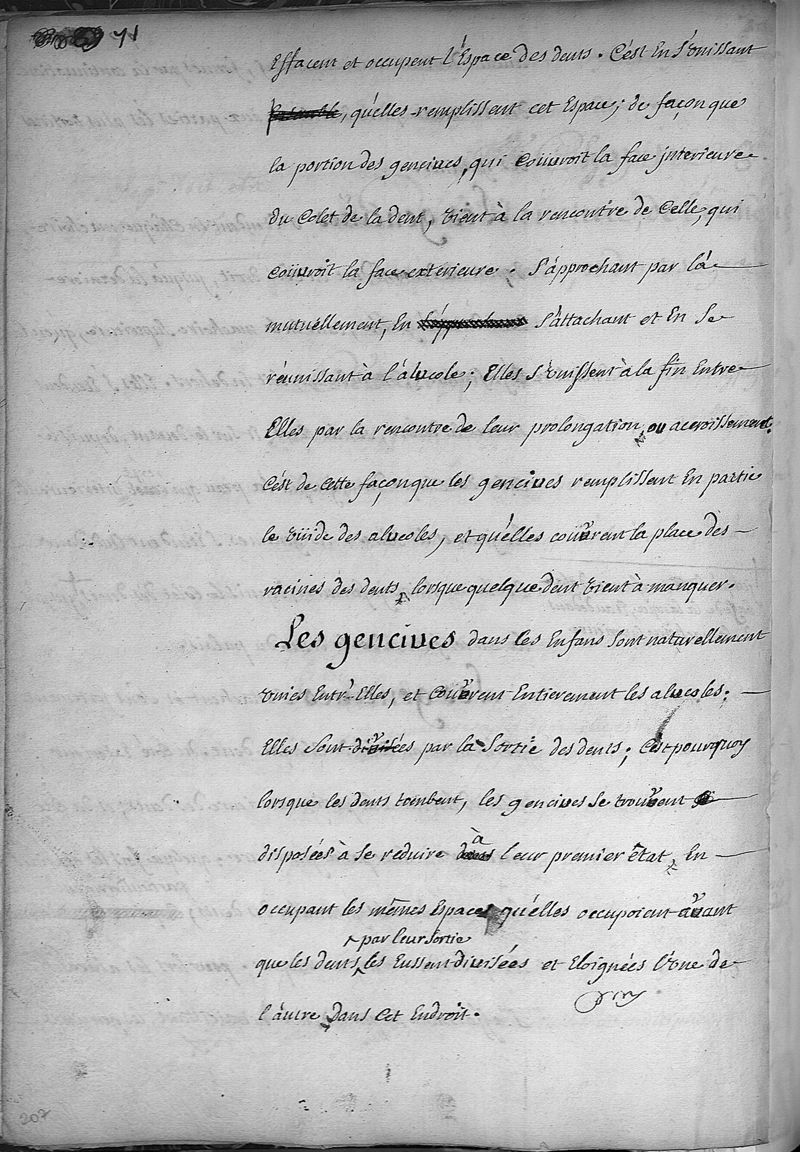 71
Effacent et occupent l'Espace des dents. C'est En s'vnissant
qu'elles remplissent cet Espace; de façon que
la portion des gencives, qui couuroit la face interieure
du Colet de la dent, vient à la rencontre de Celle, qui
couuroit la face exterieure. S'approchant par là
mutuellement, En S'attachant et En Se
réunissant à l'alueole; Elles S'vnissent à la fin Entre
Elles par la rencontre de leur prolongation, ou accroissement.
C'est de cette façon que les gencives remplissent En partie
le vüide des alueoles, et qu'elles couvrent la place des
racines des dents, lorsque quelque dent vient à manquer.
Les gencives dans les Enfans Sont naturellement
vnies Entr'Elles, et Couvrent Entierement les alueoles;
Elles Sont divisées par la Sortie des dents; C'est pourquoy
lorsque les dents tombent, les gencives Se trouvent
disposées à Se reduire à leur premier état, En
occupant les mêmes Espaces qu'elles occupoient avant
par leur Sortie
que les dents les Eussent divisées et Eloignées l'vne de
l'autre dans Cet Endroit.
207